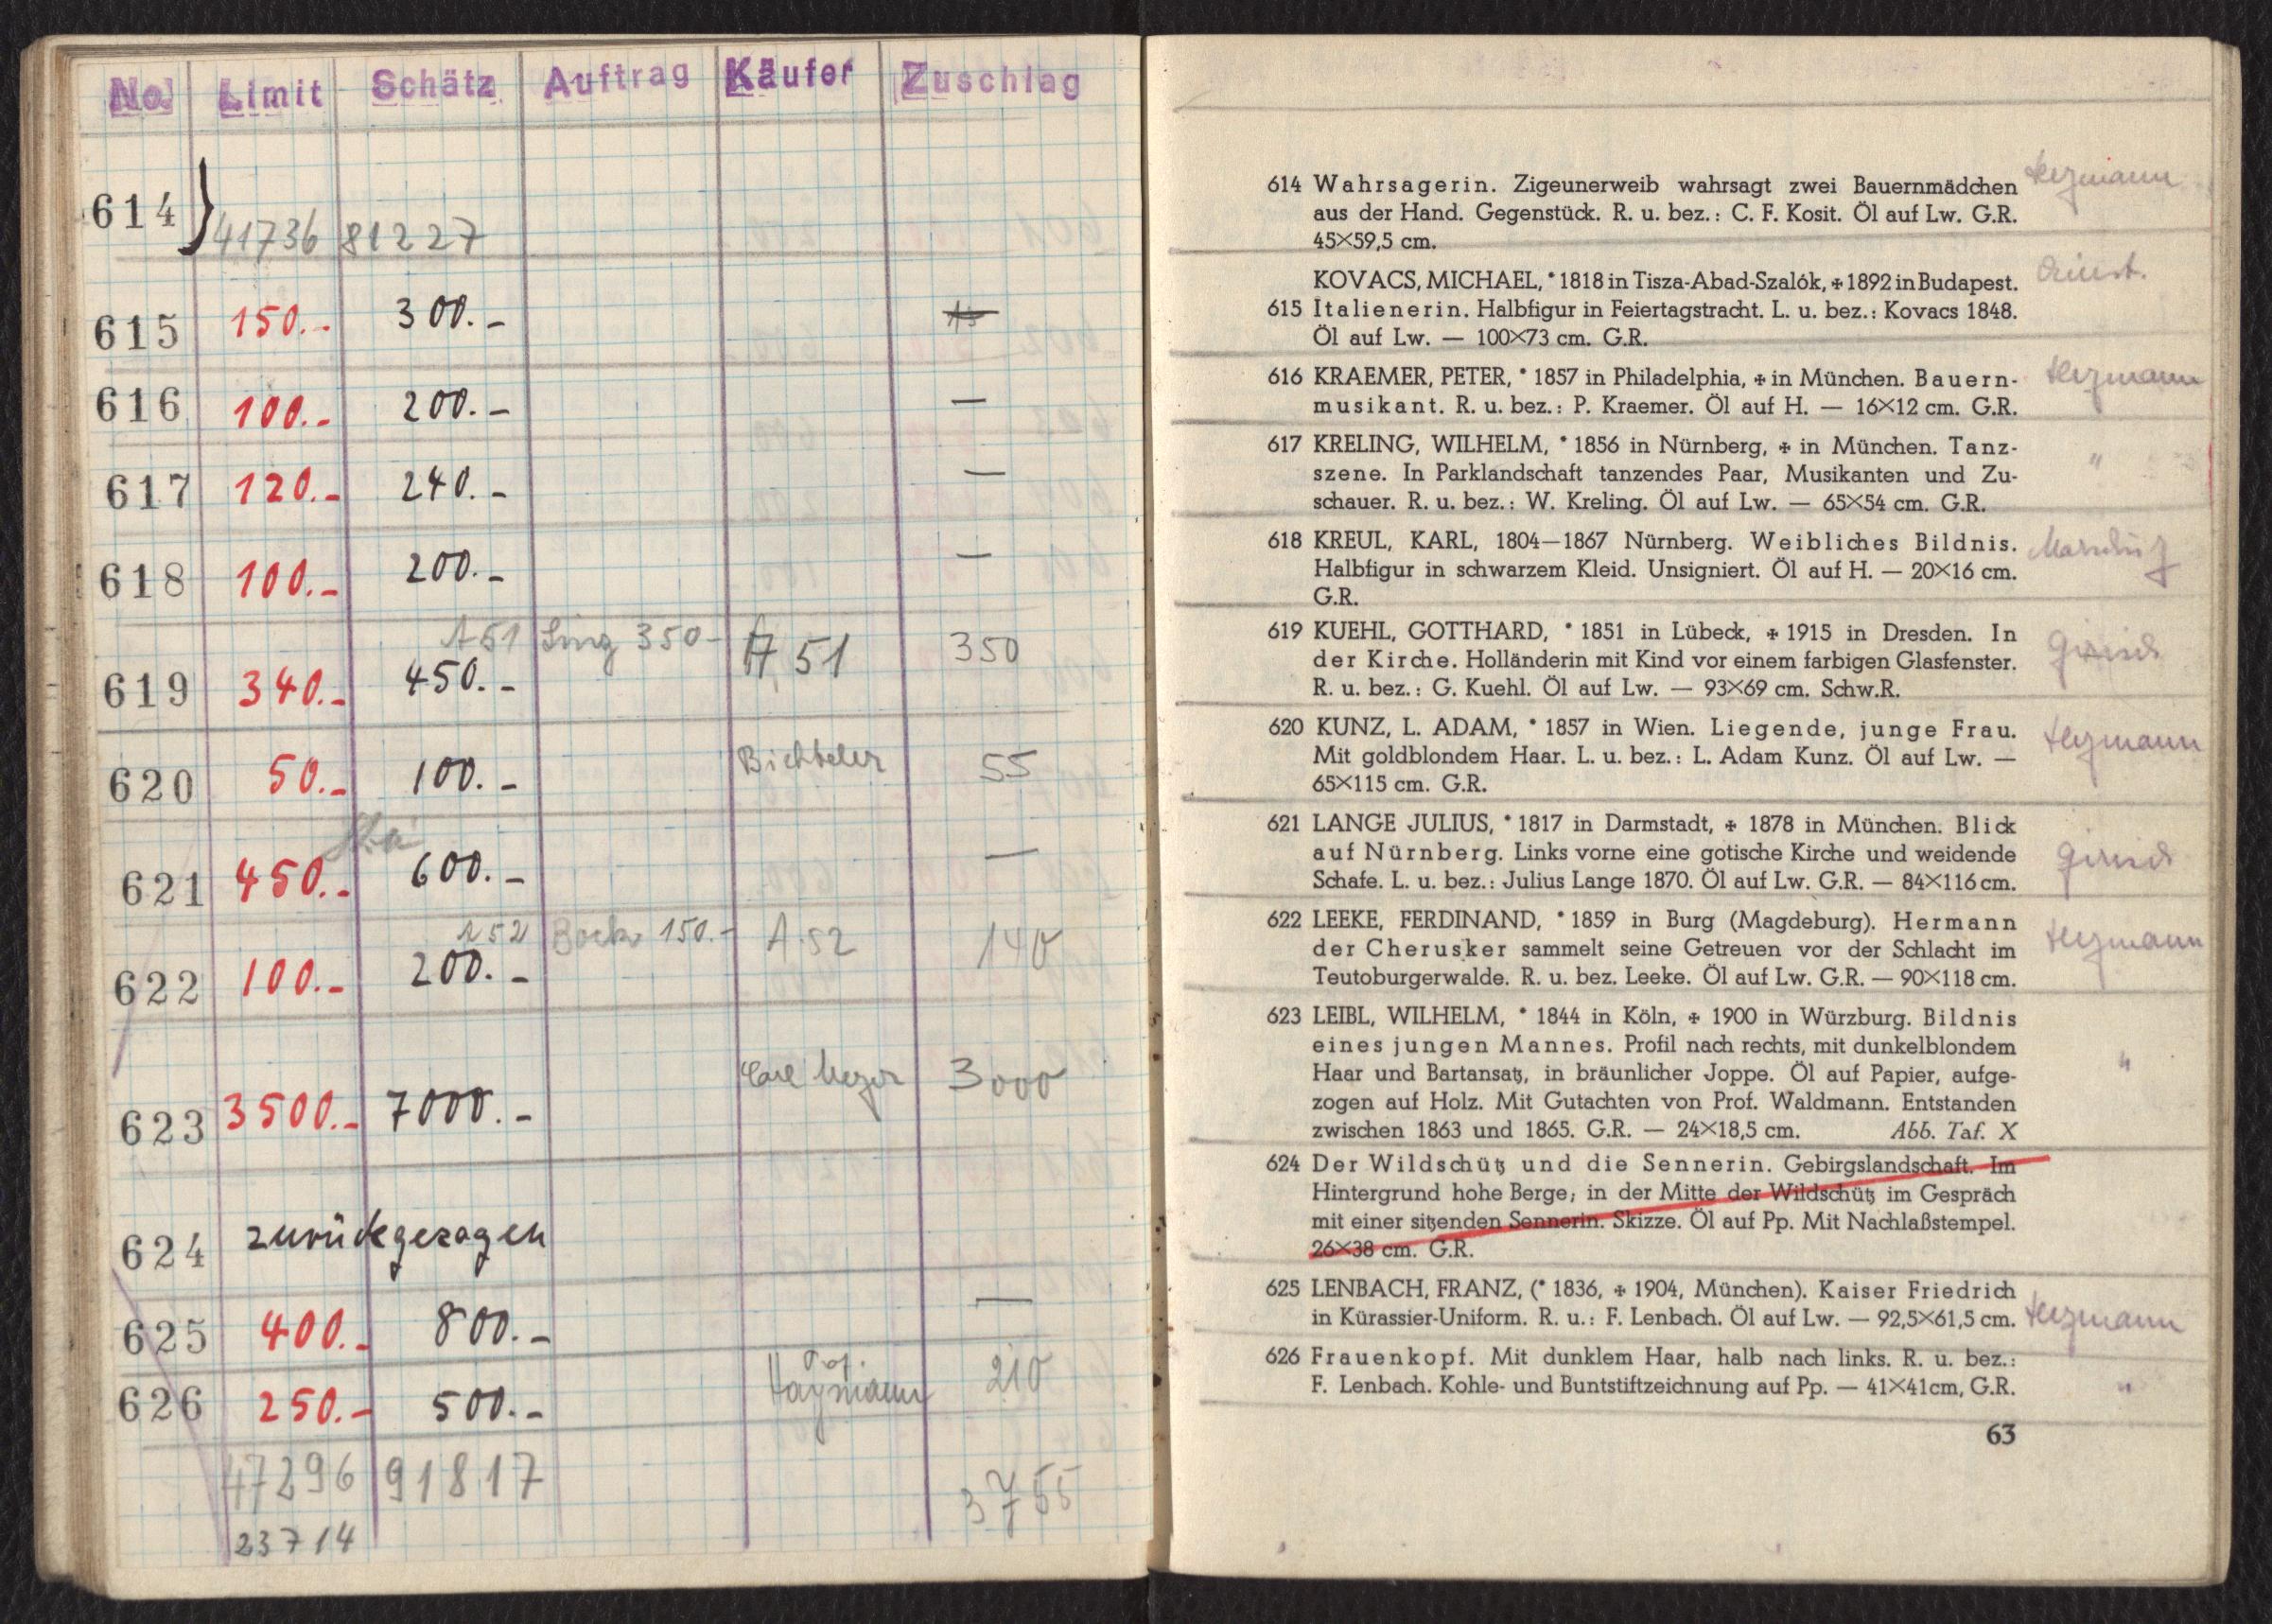 No. Limit Schätz Auftrag Käufer Zuschlag
614 } 41736 81227
615 150.- 300.-
616 100.- 200.- —
617 120.- 240.- —
618 100.- 200.- —
A 51 Ling 350-
619 340.- 450.- A 51 350
620 50.- 100.- Bichteler 55
621 450.- 600.- —
A 52 Bock 150.-
622 100.- 200.- A 52 140
623 3500.- 7000.- Carl Meyer 3000
624 zurückgezogen
625 400.- 800.- —
626 250.- 500.- Haymann 210
47296 91817
3755
23714
614 Wahrsagerin. Zigeunerweib wahrsagt zwei Bauernmädchen
aus der Hand. Gegenstück. R. u. bez.: C. F. Kosit. Öl auf Lw. G.R.
45×59,5 cm.
KOVACS, MICHAEL, * 1818 in Tisza-Abad-Szalók, ✠ 1892 in Budapest.
615 Italienerin. Halbfigur in Feiertagstracht. L. u. bez.: Kovacs 1848.
Öl auf Lw. — 100×73 cm. G.R.
616 KRAEMER, PETER, * 1857 in Philadelphia, ✠ in München. Bauern-
musikant. R. u. bez.: P. Kraemer. Öl auf H. — 16×12 cm. G.R.
617 KRELING, WILHELM, * 1856 in Nürnberg, ✠ in München. Tanz-
szene. In Parklandschaft tanzendes Paar, Musikanten und Zu-
schauer. R. u. bez.: W. Kreling. Öl auf Lw. — 65×54 cm. G.R.
"
618 KREUL, KARL, 1804—1867 Nürnberg. Weibliches Bildnis.
Halbfigur in schwarzem Kleid. Unsigniert. Öl auf H. — 20×16 cm.
G.R.
619 KUEHL, GOTTHARD, * 1851 in Lübeck, ✠ 1915 in Dresden. In
der Kirche. Holländerin mit Kind vor einem farbigen Glasfenster.
R. u. bez.: G. Kuehl. Öl auf Lw. — 93×69 cm. Schw.R.
620 KUNZ, L. ADAM, * 1857 in Wien. Liegende, junge Frau.
Mit goldblondem Haar. L. u. bez.: L. Adam Kunz. Öl auf Lw. —
65×115 cm. G.R.
621 LANGE JULIUS, * 1817 in Darmstadt, ✠ 1878 in München. Blick
auf Nürnberg. Links vorne eine gotische Kirche und weidende
Schafe. L. u. bez.: Julius Lange 1870. Öl auf Lw. G.R. — 84×116 cm.
622 LEEKE, FERDINAND, * 1859 in Burg (Magdeburg). Hermann
der Cherusker sammelt seine Getreuen vor der Schlacht im
Teutoburgerwalde. R. u. bez. Leeke. Öl auf Lw. G.R. — 90×118 cm.
623 LEIBL, WILHELM, * 1844 in Köln, ✠ 1900 in Würzburg. Bildnis
eines jungen Mannes. Profil nach rechts, mit dunkelblondem
Haar und Bartansatz, in bräunlicher Joppe. Öl auf Papier, aufge-
zogen auf Holz. Mit Gutachten von Prof. Waldmann. Entstanden
zwischen 1863 und 1865. G.R. — 24×18,5 cm. Abb. Taf. X
"
624 Der Wildschütz und die Sennerin. Gebirgslandschaft. Im
Hintergrund hohe Berge; in der Mitte der Wildschütz im Gespräch
mit einer sitzenden Sennerin. Skizze. Öl auf Pp. Mit Nachlaßstempel.
26×38 cm. G.R.
625 LENBACH, FRANZ, (* 1836, ✠ 1904, München). Kaiser Friedrich
in Kürassier-Uniform. R. u.: F. Lenbach. Öl auf Lw. — 92,5×61,5 cm.
626 Frauenkopf. Mit dunklem Haar, halb nach links. R. u. bez.:
F. Lenbach. Kohle- und Buntstiftzeichnung auf Pp. — 41×41cm, G.R.
"
63